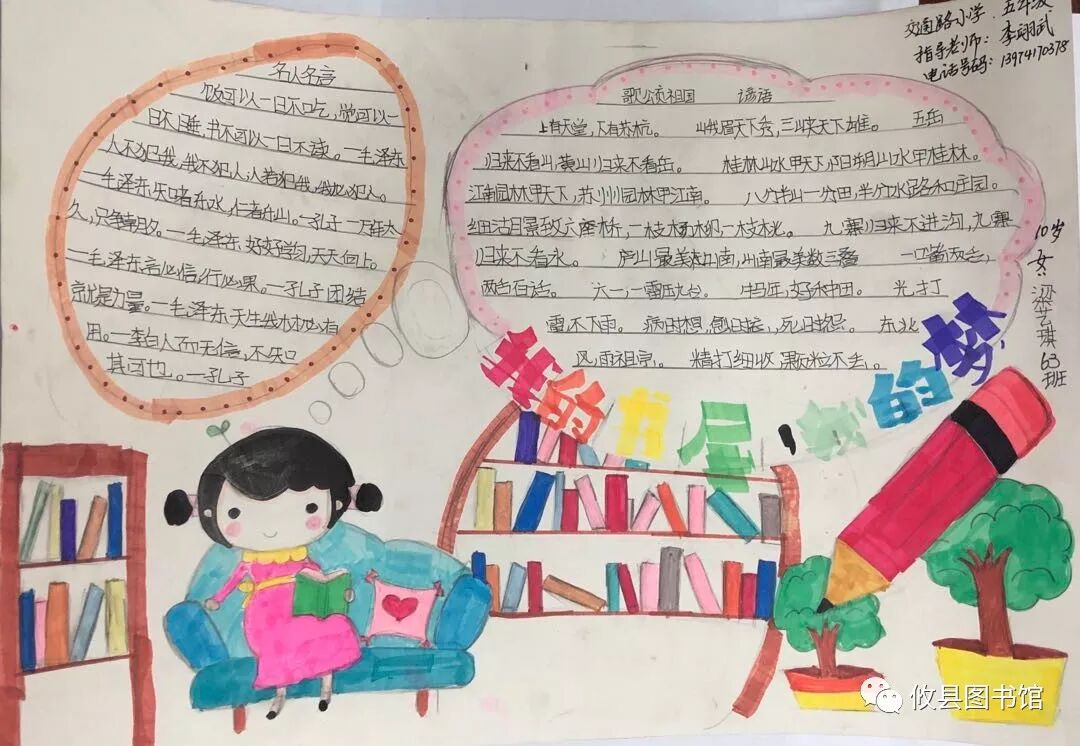 交通路小学 五年级
指导老师：李翊武
电话号码：13974170378
名人名言
饭可以一日不吃，觉可以一
日不睡，书不可以一日不读。一毛泽东
人不犯我，我不犯人，人若犯我，我必犯人。
一毛泽东 知者乐水，仁者乐山。一孔子 一万年太
久，只争朝夕。一毛泽东 好好学习，天天向上。
一毛泽东 言必信，行必果。一孔子 团结
就是力量。一毛泽东 天生我材必有
用。一李白 人而无信，不知
其可也。一孔子
歌颂祖国 谚语
上有天堂，下有苏杭。 峨眉天下秀，三峡天下雄。 五岳
归来不看山，黄山归来不看岳。 桂林山水甲天下，阳朔山水甲桂林。
江南园林甲天下，苏州园林甲江南。 八分半山一分田，半分水路和庄园。
六座桥，一枝杨柳一枝桃。 九寨归来不进沟，九寨
归来不看水。 庐山最美在山南，山南最美数三叠
雷不下雨。 东北
风，雨祖宗。 精打细收，颗粒不丢。
我的书屋，我的梦
10岁 女 梁云琪 63班
攸县图书馆